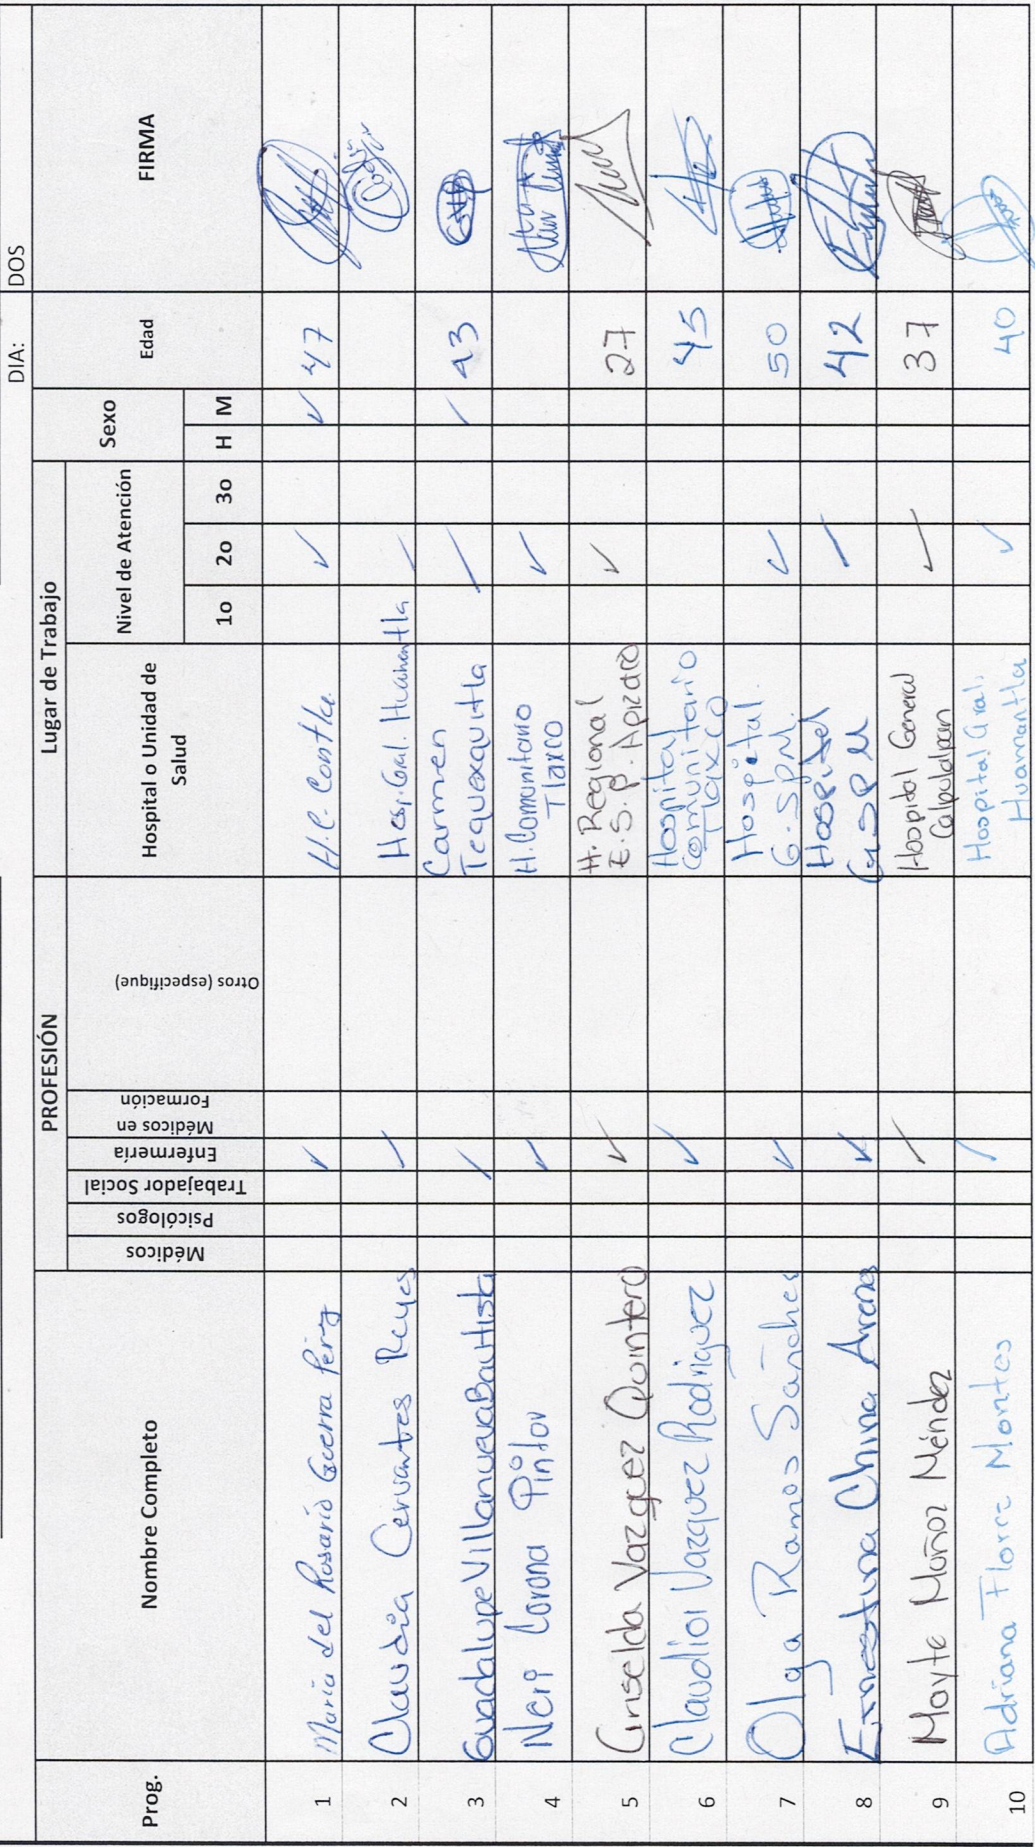 DIA: DOS
Prog. Nombre Completo PROFESIÓN Lugar de Trabajo Sexo Edad FIRMA
Médicos Psicólogos Trabajador Social Enfermería Médicos en Formación Otros (especifique) Hospital o Unidad de Salud Nivel de Atención
1o 2o 3o H M
1 Maria del Rosario Guerra Pérez ✓ H.C. Contla ✓ ✓ 47
2 Claudia Cervantes Reyes ✓ Hosp. Gral. Huamantla ✓
3 Guadalupe Villanueva Bautista ✓ Carmen Tequexquitla ✓ ✓ 43
4 Neri Corona Pintor ✓ H. Comunitario Tlaxco ✓
5 Griselda Vazquez Quintero ✓ H. Regional E.S.P. Apizaco ✓ 27
6 Claudia Vazquez Rodriguez ✓ Hospital Comunitario Tlaxco 45
7 Olga Ramos Sanchez ✓ Hospital G. SPM. ✓ 50
8 Ernestina China Arenas ✓ Hospital G SPM ✓ 42
9 Mayte Muñoz Méndez ✓ Hospital General Calpulalpan ✓ 37
10 Adriana Florez Montes ✓ Hospital Gral. Huamantla ✓ 40